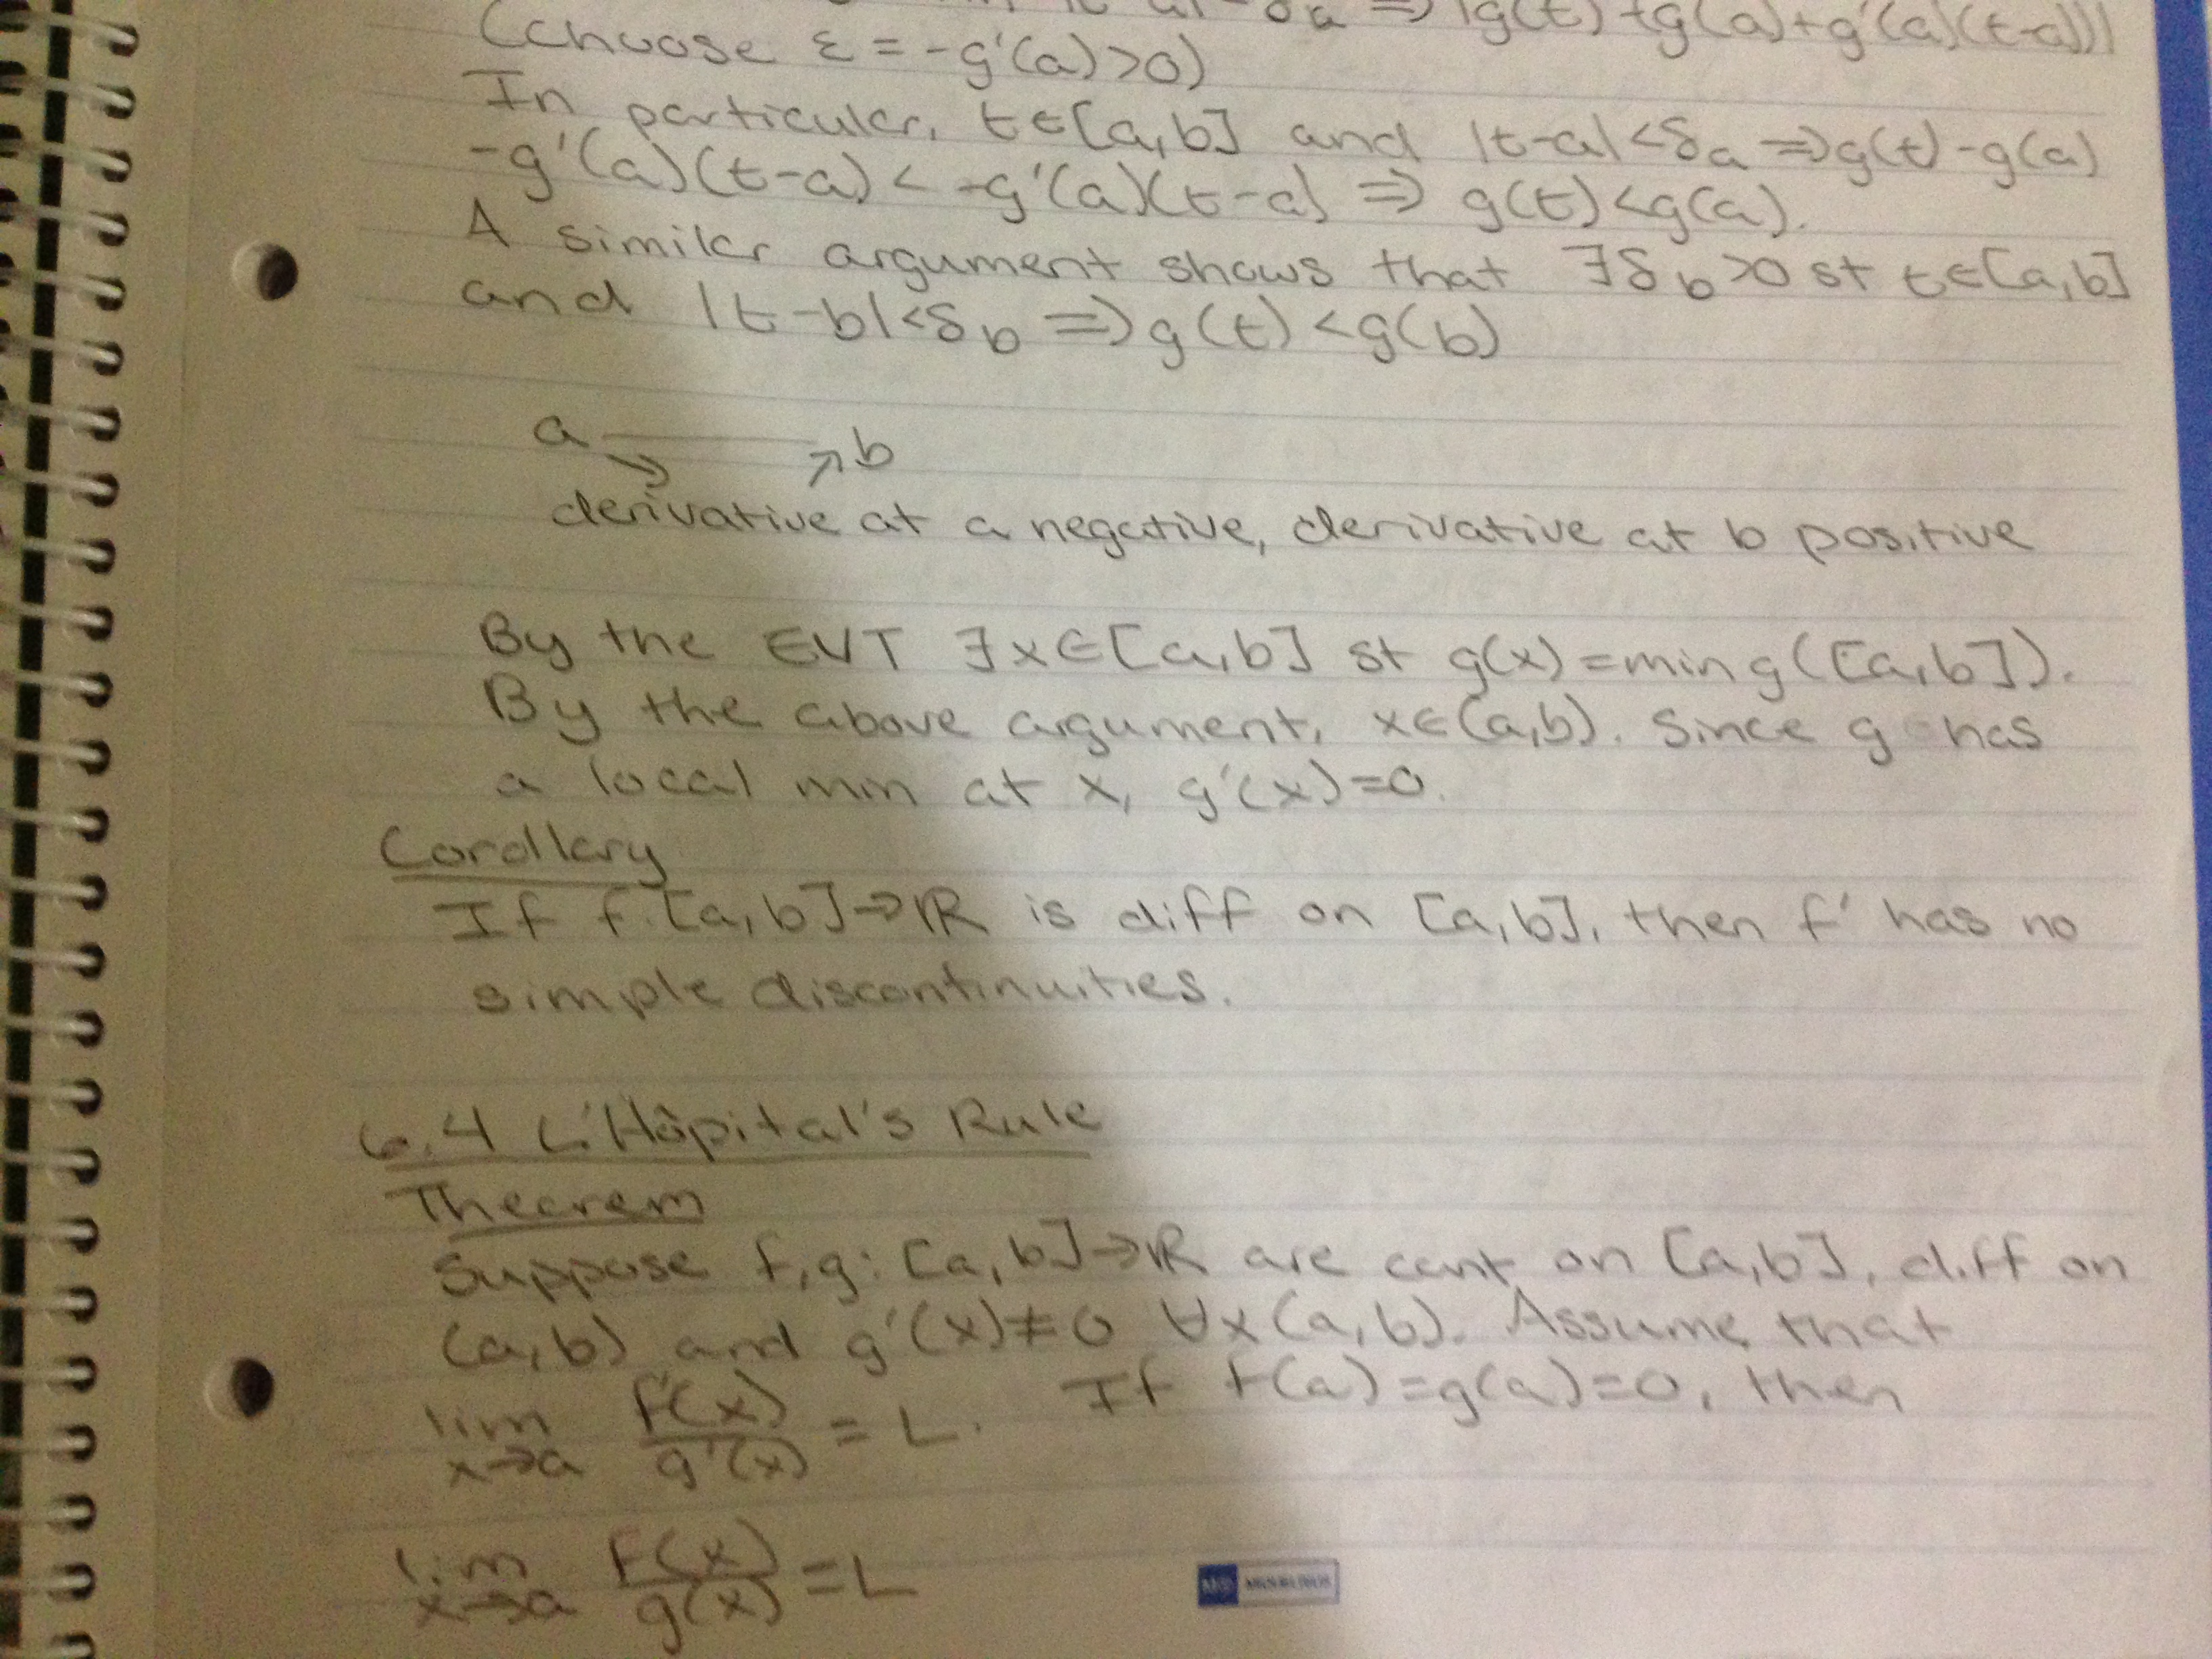 => |g(t)-(g(a)+g'(a)(t-a))|
(choose ε = -g'(a)>0)
In particular, t∈[a,b] and |t-a|<δa => g(t)-g(a)
-g'(a)(t-a) < -g'(a)(t-a) => g(t)<g(a).
A similar argument shows that ∃δb>0 st t∈[a,b]
and |t-b|<δb => g(t)<g(b)
a b
derivative at a negative, derivative at b positive
By the EVT ∃x∈[a,b] st g(x)=min g([a,b]).
By the above argument, x∈(a,b). Since g has
a local min at x, g'(x)=0.
Corollary
If f:[a,b]→ℝ is diff on [a,b], then f' has no
simple discontinuities.
6.4 L'Hôpital's Rule
Theorem
Suppose f,g: [a,b]→ℝ are cont on [a,b], diff on
(a,b) and g'(x)≠0 ∀x(a,b). Assume that
lim x→a f'(x)/g'(x) = L. If f(a)=g(a)=0, then
lim x→a f(x)/g(x) = L